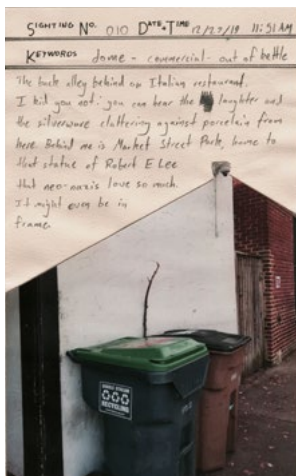 SIGHTING NO. 010 DATE+TIME 12/27/19 11:51 AM
KEYWORDS dome - commercial - out of bottle
The back alley behind an Italian restaurant.
I kid you not: you can hear the laughter and
the silverware clattering against porcelain from
here. Behind me is Market Street Park, home to
that statue of Robert E Lee
that neo-nazis love so much.
It might even be in
frame.
RECYCLING